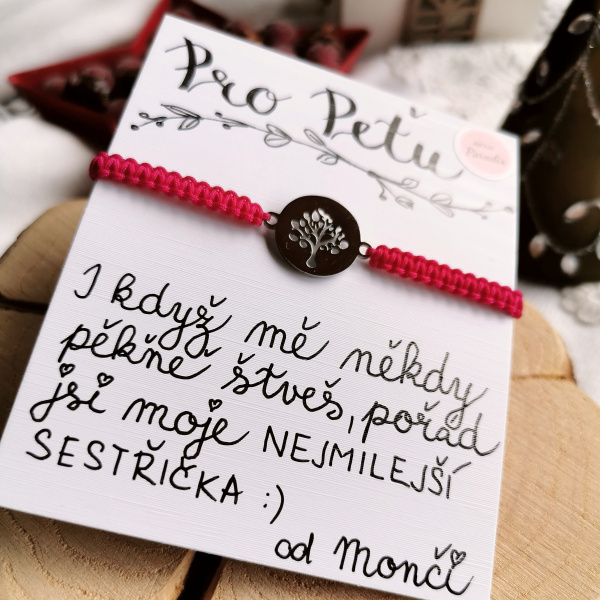 Pro Peťu
Paradis
I když mě někdy
pěkně štveš, pořád
jsi moje NEJMILEJŠÍ
SESTŘIČKA :)
od Monči